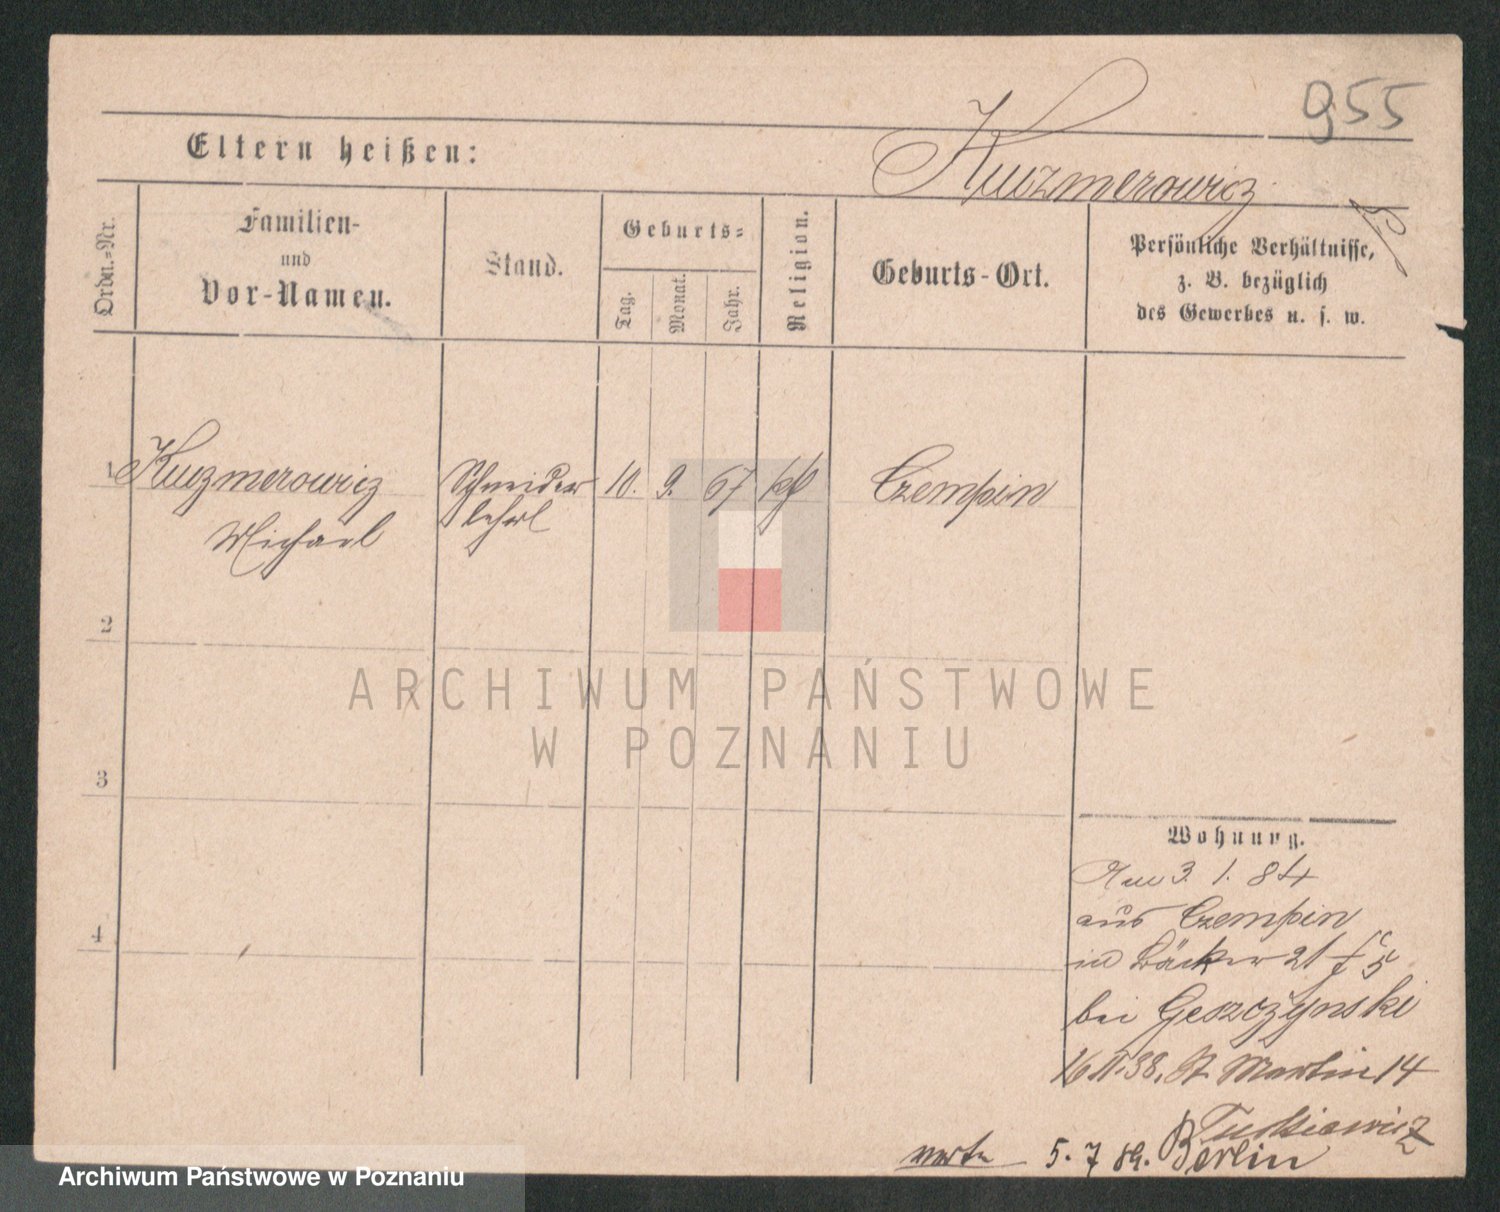 955
Eltern heißen:
Kuczmerowicz
Ordn.=Nr.
Familien-
und
Vor-Namen.
Stand.
Geburts=
Tag.
Monat.
Jahr.
Religion.
Geburts-Ort.
Persönliche Verhältnisse,
z. B. bezüglich
des Gewerbes u. s. w.
1 Kuczmerowicz Schneider 10. 9. 67 kth Czempin
Michael lehrl
2
3
4
Wohnung.
Am 3. 1. 84
aus Czempin
in Bäcker 21
bei
16 11.88. St Martin 14
5. 7 89. Berlin
ARCHIWUM PAŃSTWOWE
W POZNANIU
Archiwum Państwowe w Poznaniu